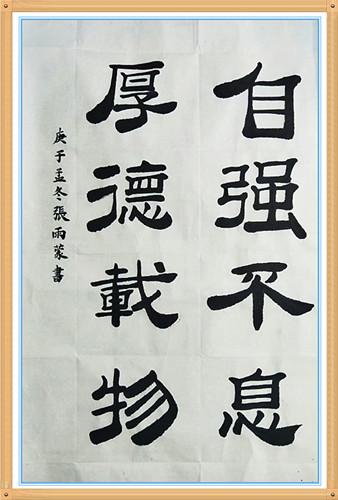 自强不息
厚德載物
庚子孟冬張雨蒙書